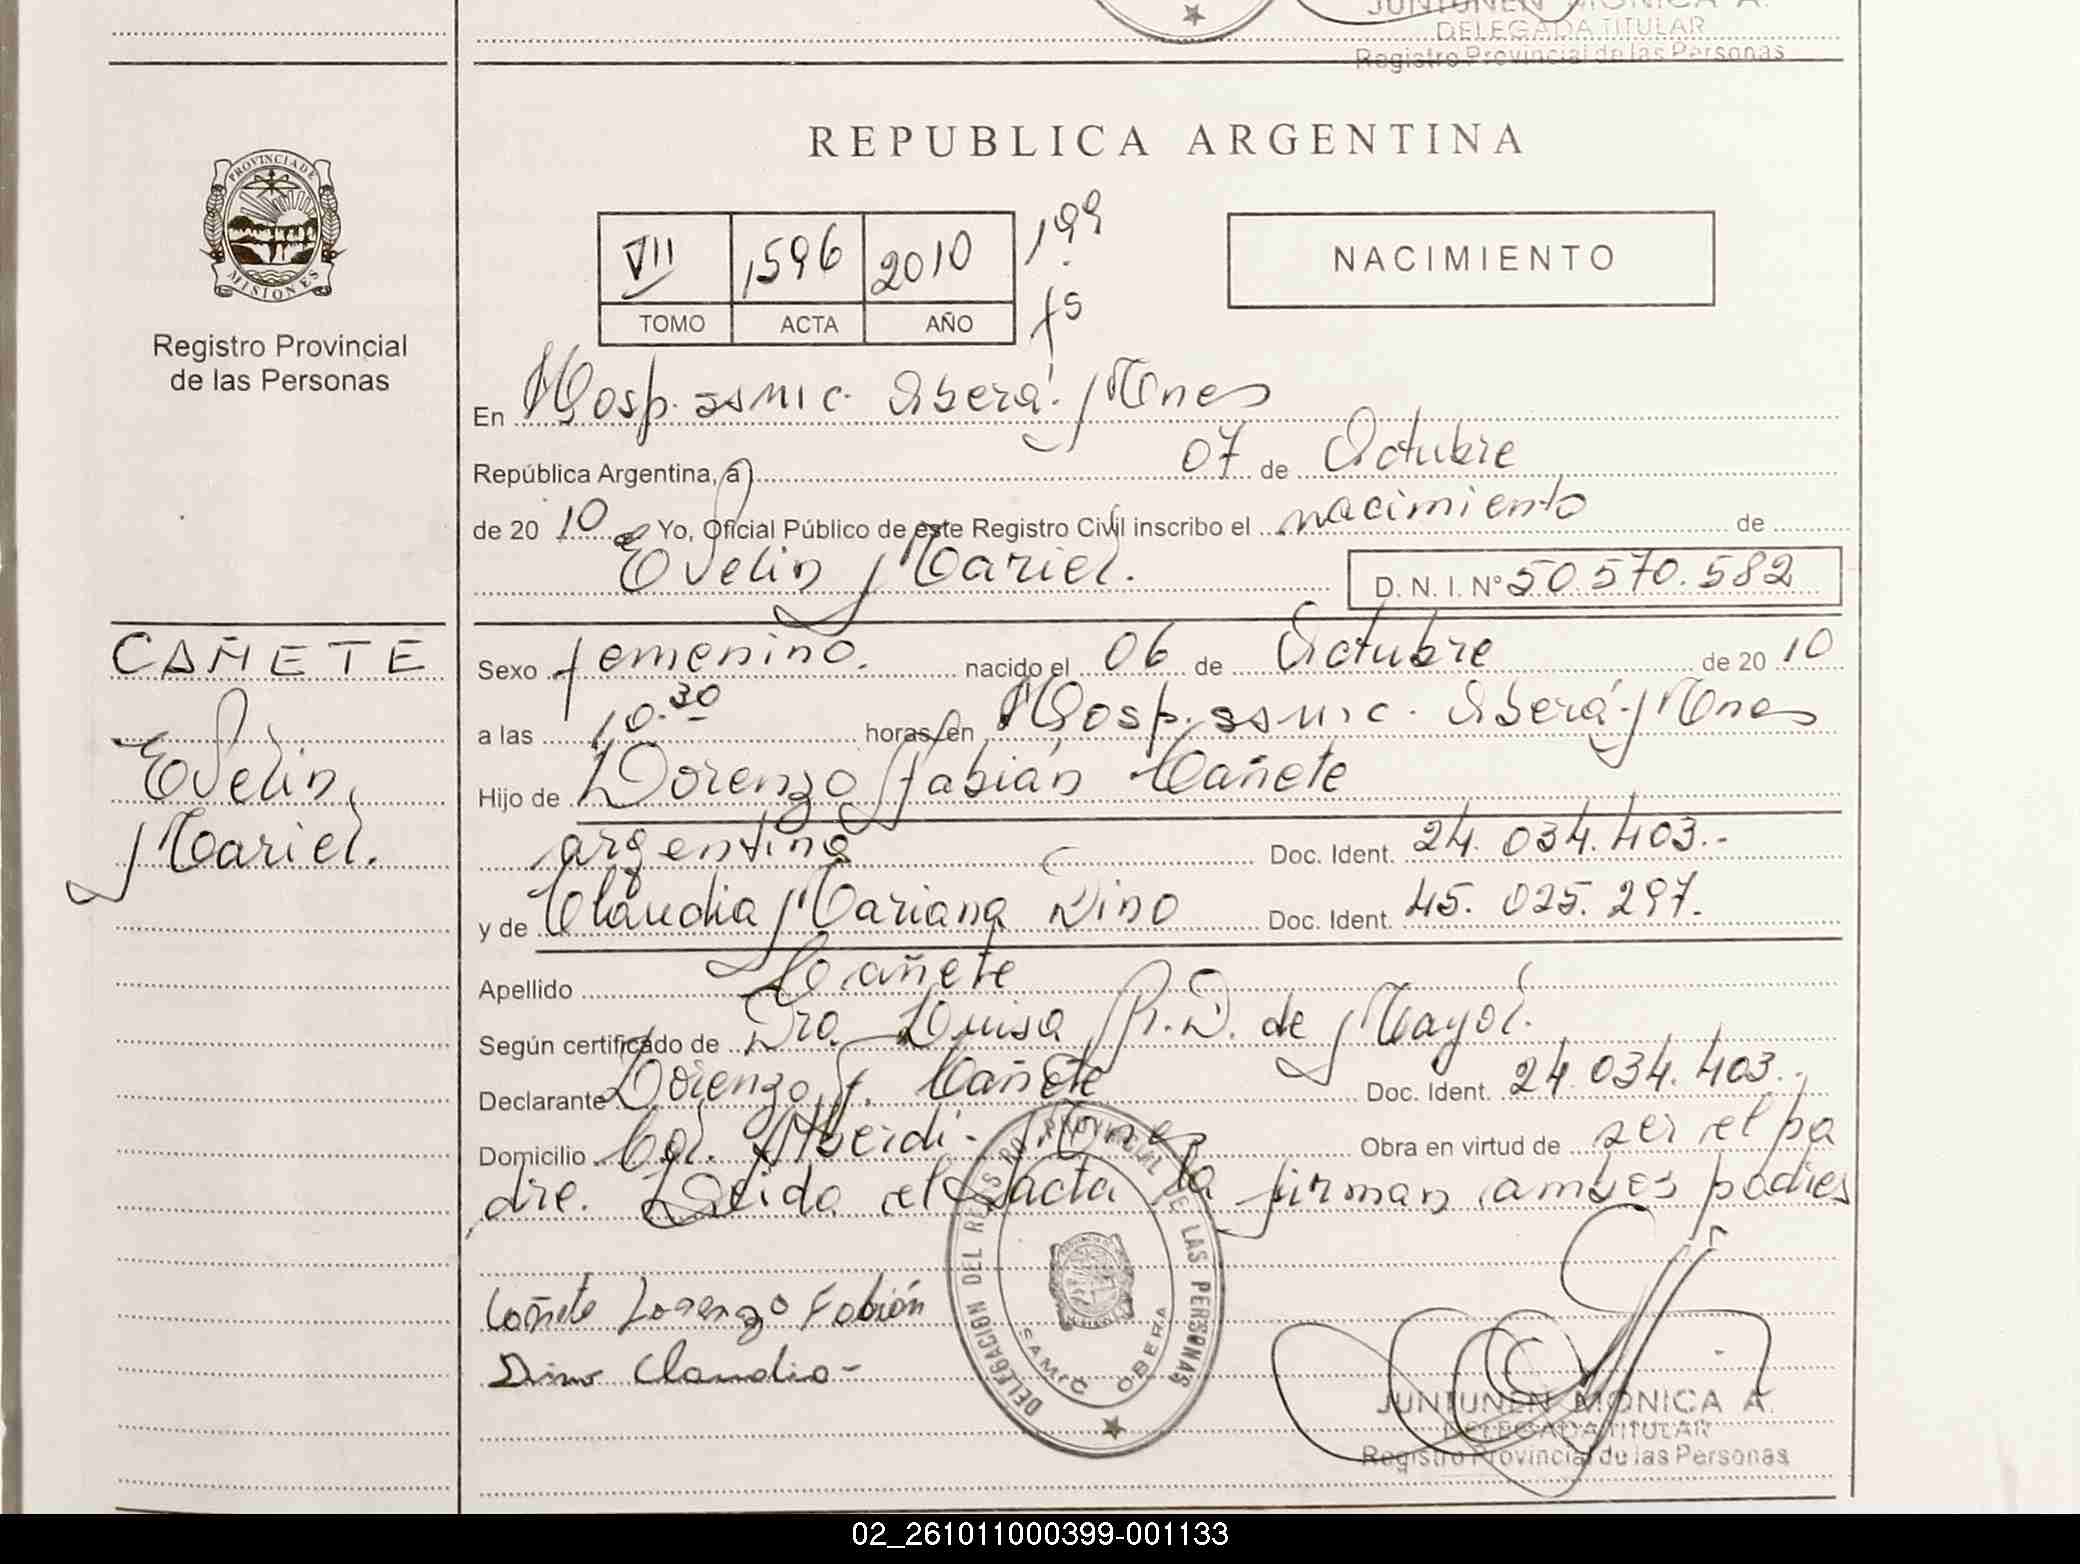 JUNTUNEN MONICA A.
DELEGADA TITULAR
Registro Provincial de las Personas
REPUBLICA ARGENTINA
PROVINCIA DE
MISIONES
Registro Provincial
de las Personas
VII 1596 2010 199
TOMO ACTA AÑO fs
NACIMIENTO
En Hosp. SSMIC. Oberá - Mnes
República Argentina, a 07 de Octubre
de 20 10 Yo, Oficial Público de este Registro Civil inscribo el nacimiento de
Evelin Mariel. D. N. I. Nº 50.570.582
CAÑETE
Evelin
Mariel.
Sexo femenino. nacido el 06 de Octubre de 20 10
a las 10.30 horas en Hosp. SSMIC. Oberá - Mnes
Hijo de Lorenzo Fabián Cañete
argentino Doc. Ident. 24.034.403.-
y de Claudia Mariana Dino Doc. Ident. 45.025.297.
Apellido Cañete
Según certificado de Dra. Luisa R. D. de Mayol.
Declarante Lorenzo F. Cañete Doc. Ident. 24.034.403.-
Domicilio Col. Alberdi - Mnes Obra en virtud de ser el pa
dre. Leída el acta la firman ambos padres
Cañete Lorenzo Fabián
Dino Claudia-
DELEGACION DEL REGISTRO PROVINCIAL DE LAS PERSONAS
SAMIC OBERA
JUNTUNEN MONICA A.
DELEGADA TITULAR
Registro Provincial de las Personas
02_261011000399-001133